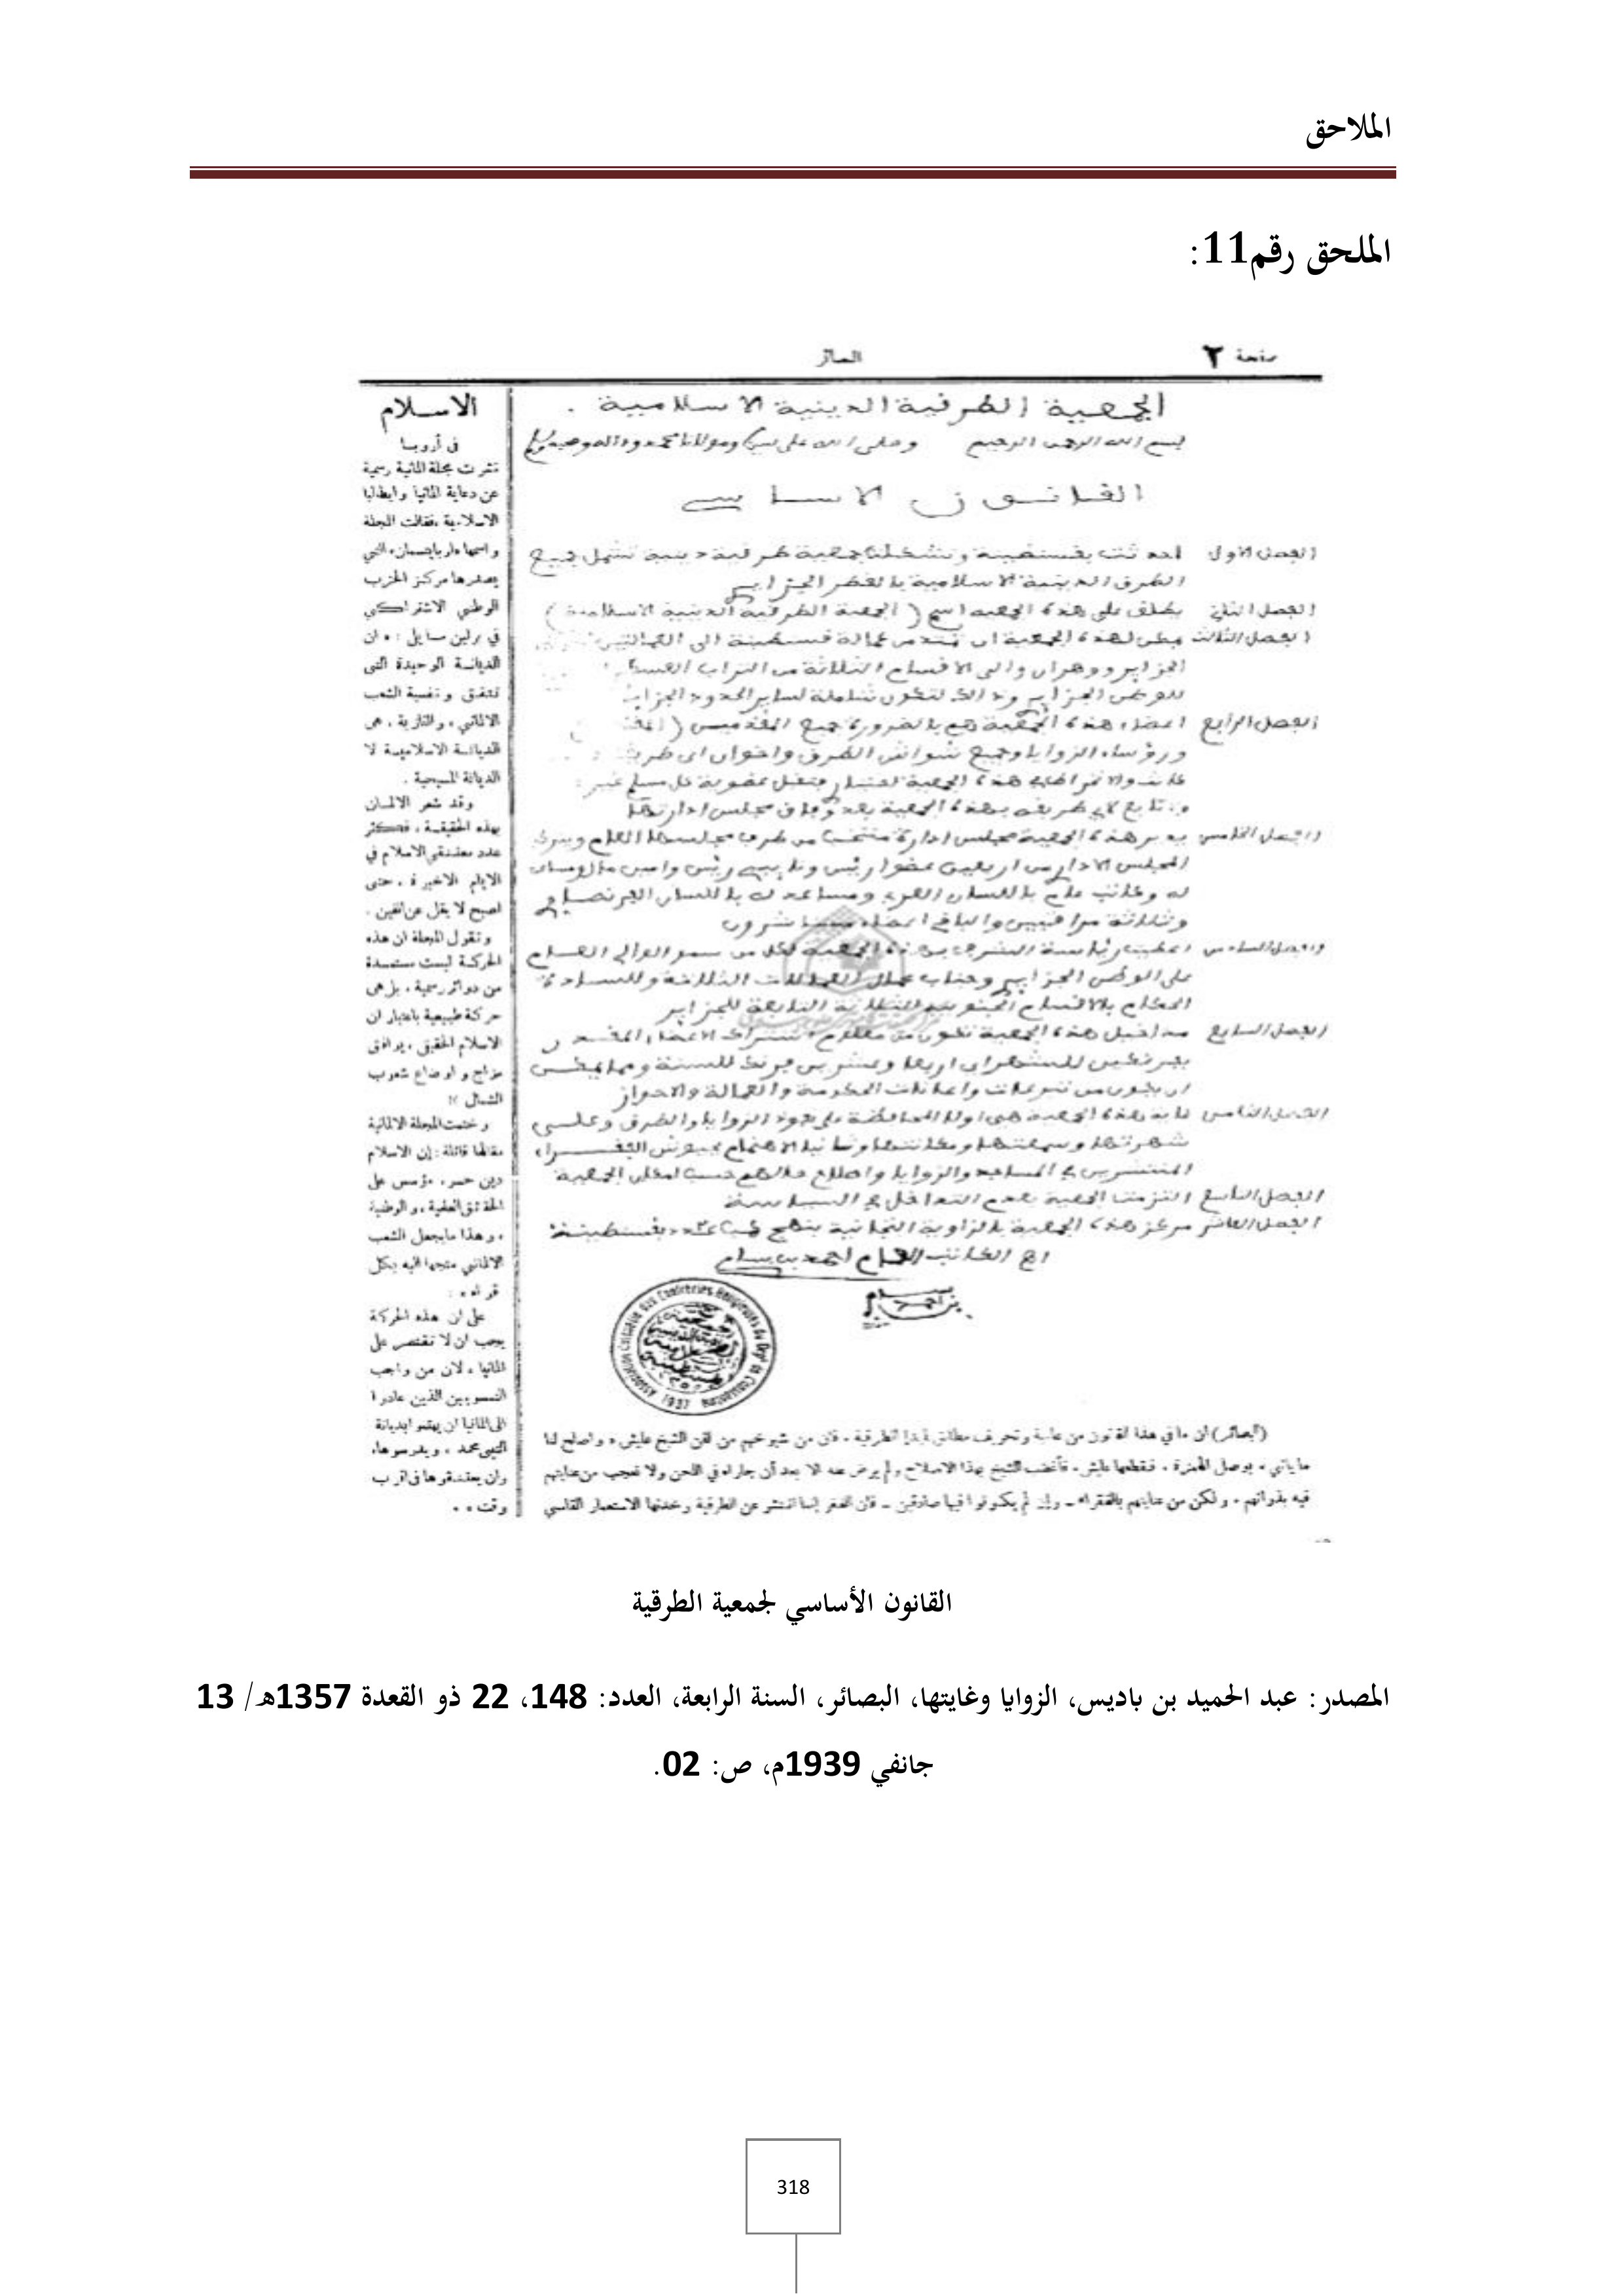 الملاحق
الملحق رقم11:
صفحة ٢
البصائر
الجمعية الطرقية الدينية الاسلامية .
بسم الله الرحمن الرحيم وصلى الله على سيدنا ومولانا محمد وءاله وصحبه وسلم
القانون الاساسي
الفصل الاول احدثت بقسنطينة وتشكلت جمعية طرقية دينية تشمل جميع
الطرق الدينية الاسلامية بالقطر الجزايري
الفصل الثاني يطلق على هذه الجمعية اسم (الجمعية الطرقية الدينية الاسلامية)
الفصل الثالث لهذه الجمعية ان تمتد من عمالة قسنطينة الى العمالتين
الجزاير ووهران والى الاقسام الثلاثة من التراب
الجزاير وذالك لتكون شاملة لساير الحدود
الفصل الرابع اعضاء هذه الجمعية هم بالضرورة جميع المقدميين
ورؤساء الزوايا وجميع شواش الطرق واخوان اي
كانت هذه الجمعية
بهذه الجمعية بعد مجلس ادارتها
الفصل الخامس هذه الجمعية مجلس ادارة من طرف مجلسها العام
المجلس الاداري من اربعين عضوا رئيس ونايبي رئيس وامين مال
له وكاتب عام باللسان العربي ومساعد له باللسان الفرنصاوي
وثلاثة مراقبين والباقي اعضاء مستشارون
الفصل السادس هذه الجمعية لكل من سمو الوالي العام
على الوطن الجزايري وجناب عمال العمالات الثلاثة وللسادة
الحكام بالاقسام الجنوبية الثلاثة التابعة للجزاير
الفصل السابع مداخيل هذه الجمعية تكون من اشتراك الاعضاء
بفرنكين للشهر اي اربعا وعشرين فرنك للسنة ومما يمكن
ان يكون من تبرعات واعانات الحكومة والعمالة والاحواز
الفصل الثامن غاية هذه الجمعية هي اولا المحافظة على الزوايا والطرق وعلى
شهرتها وسمعتها ومكانتها وثانيا الاهتمام بجيوش الفقراء
المنتشرين في المساجد والزوايا واصلاح حالهم حسب امكان الجمعية
الفصل التاسع التزمت الجمعية بعدم التداخل في السياسة
الفصل العاشر مركز هذه الجمعية بالزاوية التجانية بنهج بقسنطينة
اهـ الكاتب العام احمد بن بسام
Association Cultuelle des Confréries Religieuses du Dépt de Constantine
1937
(البصائر) ان ما في هذا القانون من عامية وتحريف مطابق لمبدإ الطرقية ، فان من شيوخهم من لقن الشيخ عليش
ما ياتي ، بوصل الهمزة ، فقطعها عليش ، فأغضب الشيخ بهذا الاصلاح ولم يرض عنه الا بعد أن جاراه في اللحن ولا تعجب من عنايتهم
فيه بذواتهم ، ولكن من عنايتهم بالفقراء ــ وإن لم يكونوا فيها صادقين ــ فان الفقر إنما انتشر عن الطرقية وخدنها الاستعمار القاسي
الاسلام
فى أروبا
نشرت مجلة المانية رسمية
عن دعاية المانيا وايطاليا
الاسلامية ،فقالت المجلة
واسمها التي
يصدرها مركز الحزب
الوطني الاشتراكي
في برلين ما يلي : « ان
الديانة الوحيدة التى
تتفق ونفسية الشعب
الالماني ، والنازية ، هى
الديانة الاسلامية لا
الديانة المسيحية .
وقد شعر الالمان
بهذه الحقيقة ، فكثر
عدد معتنقي الاسلام في
الايام الاخيرة ، حتى
اصبح لا يقل عن الفين .
وتقول المجلة ان هذه
الحركة ليست مستمدة
من دوائر رسمية ، بل هى
حركة طبيعية باعتبار ان
الاسلام الحقيقي ، يوافق
مزاج واوضاع شعوب
الشمال »!
وختمت المجلة الالمانية
مقالها قائلة : إن الاسلام
دين حسر ، مؤسس على
الحقائق العقلية ، والوطنية
، وهذا ما يجعل الشعب
الالماني متجها اليه بكل
قواه » :
على ان هذه الحركة
يجب ان لا تقتصر على
المانيا ، لان من واجب
النمسويين الذين عادوا
الى المانيا ان يهتموا بديانة
النبي محمد ، ويدرسوها،
وان يعتنقوها فى اقرب
وقت » .
القانون الأساسي لجمعية الطرقية
المصدر: عبد الحميد بن باديس، الزوايا وغايتها، البصائر، السنة الرابعة، العدد: 148، 22 ذو القعدة 1357هـ/ 13
جانفي 1939م، ص: 02.
318